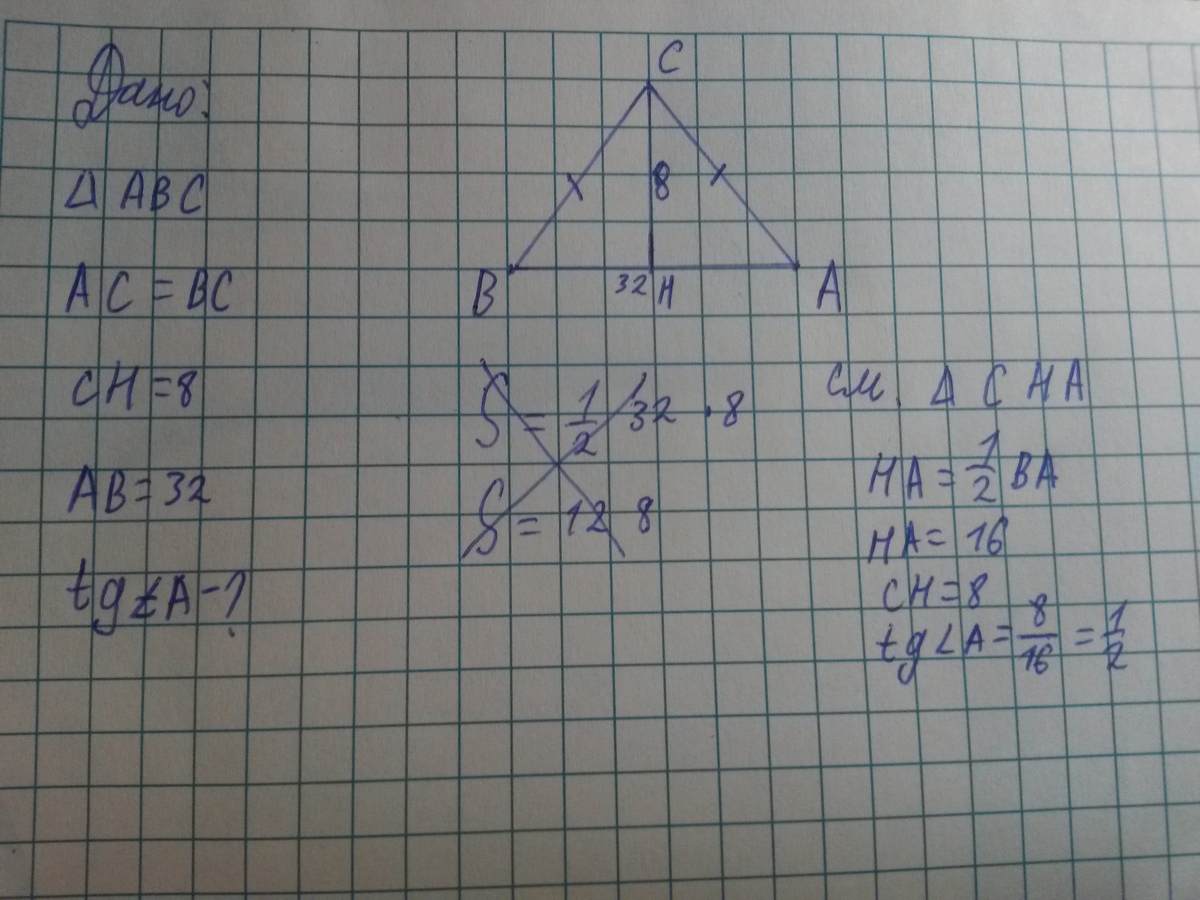 Дано:
Δ ABC
AC = BC
CH = 8
AB = 32
tg∠A - ?
C
8
B
32
H
A
S = 1/2 32 · 8
S = 12 8
см. Δ CHA
HA = 1/2 BA
HA = 16
CH = 8
tg∠A = 8/16 = 1/2